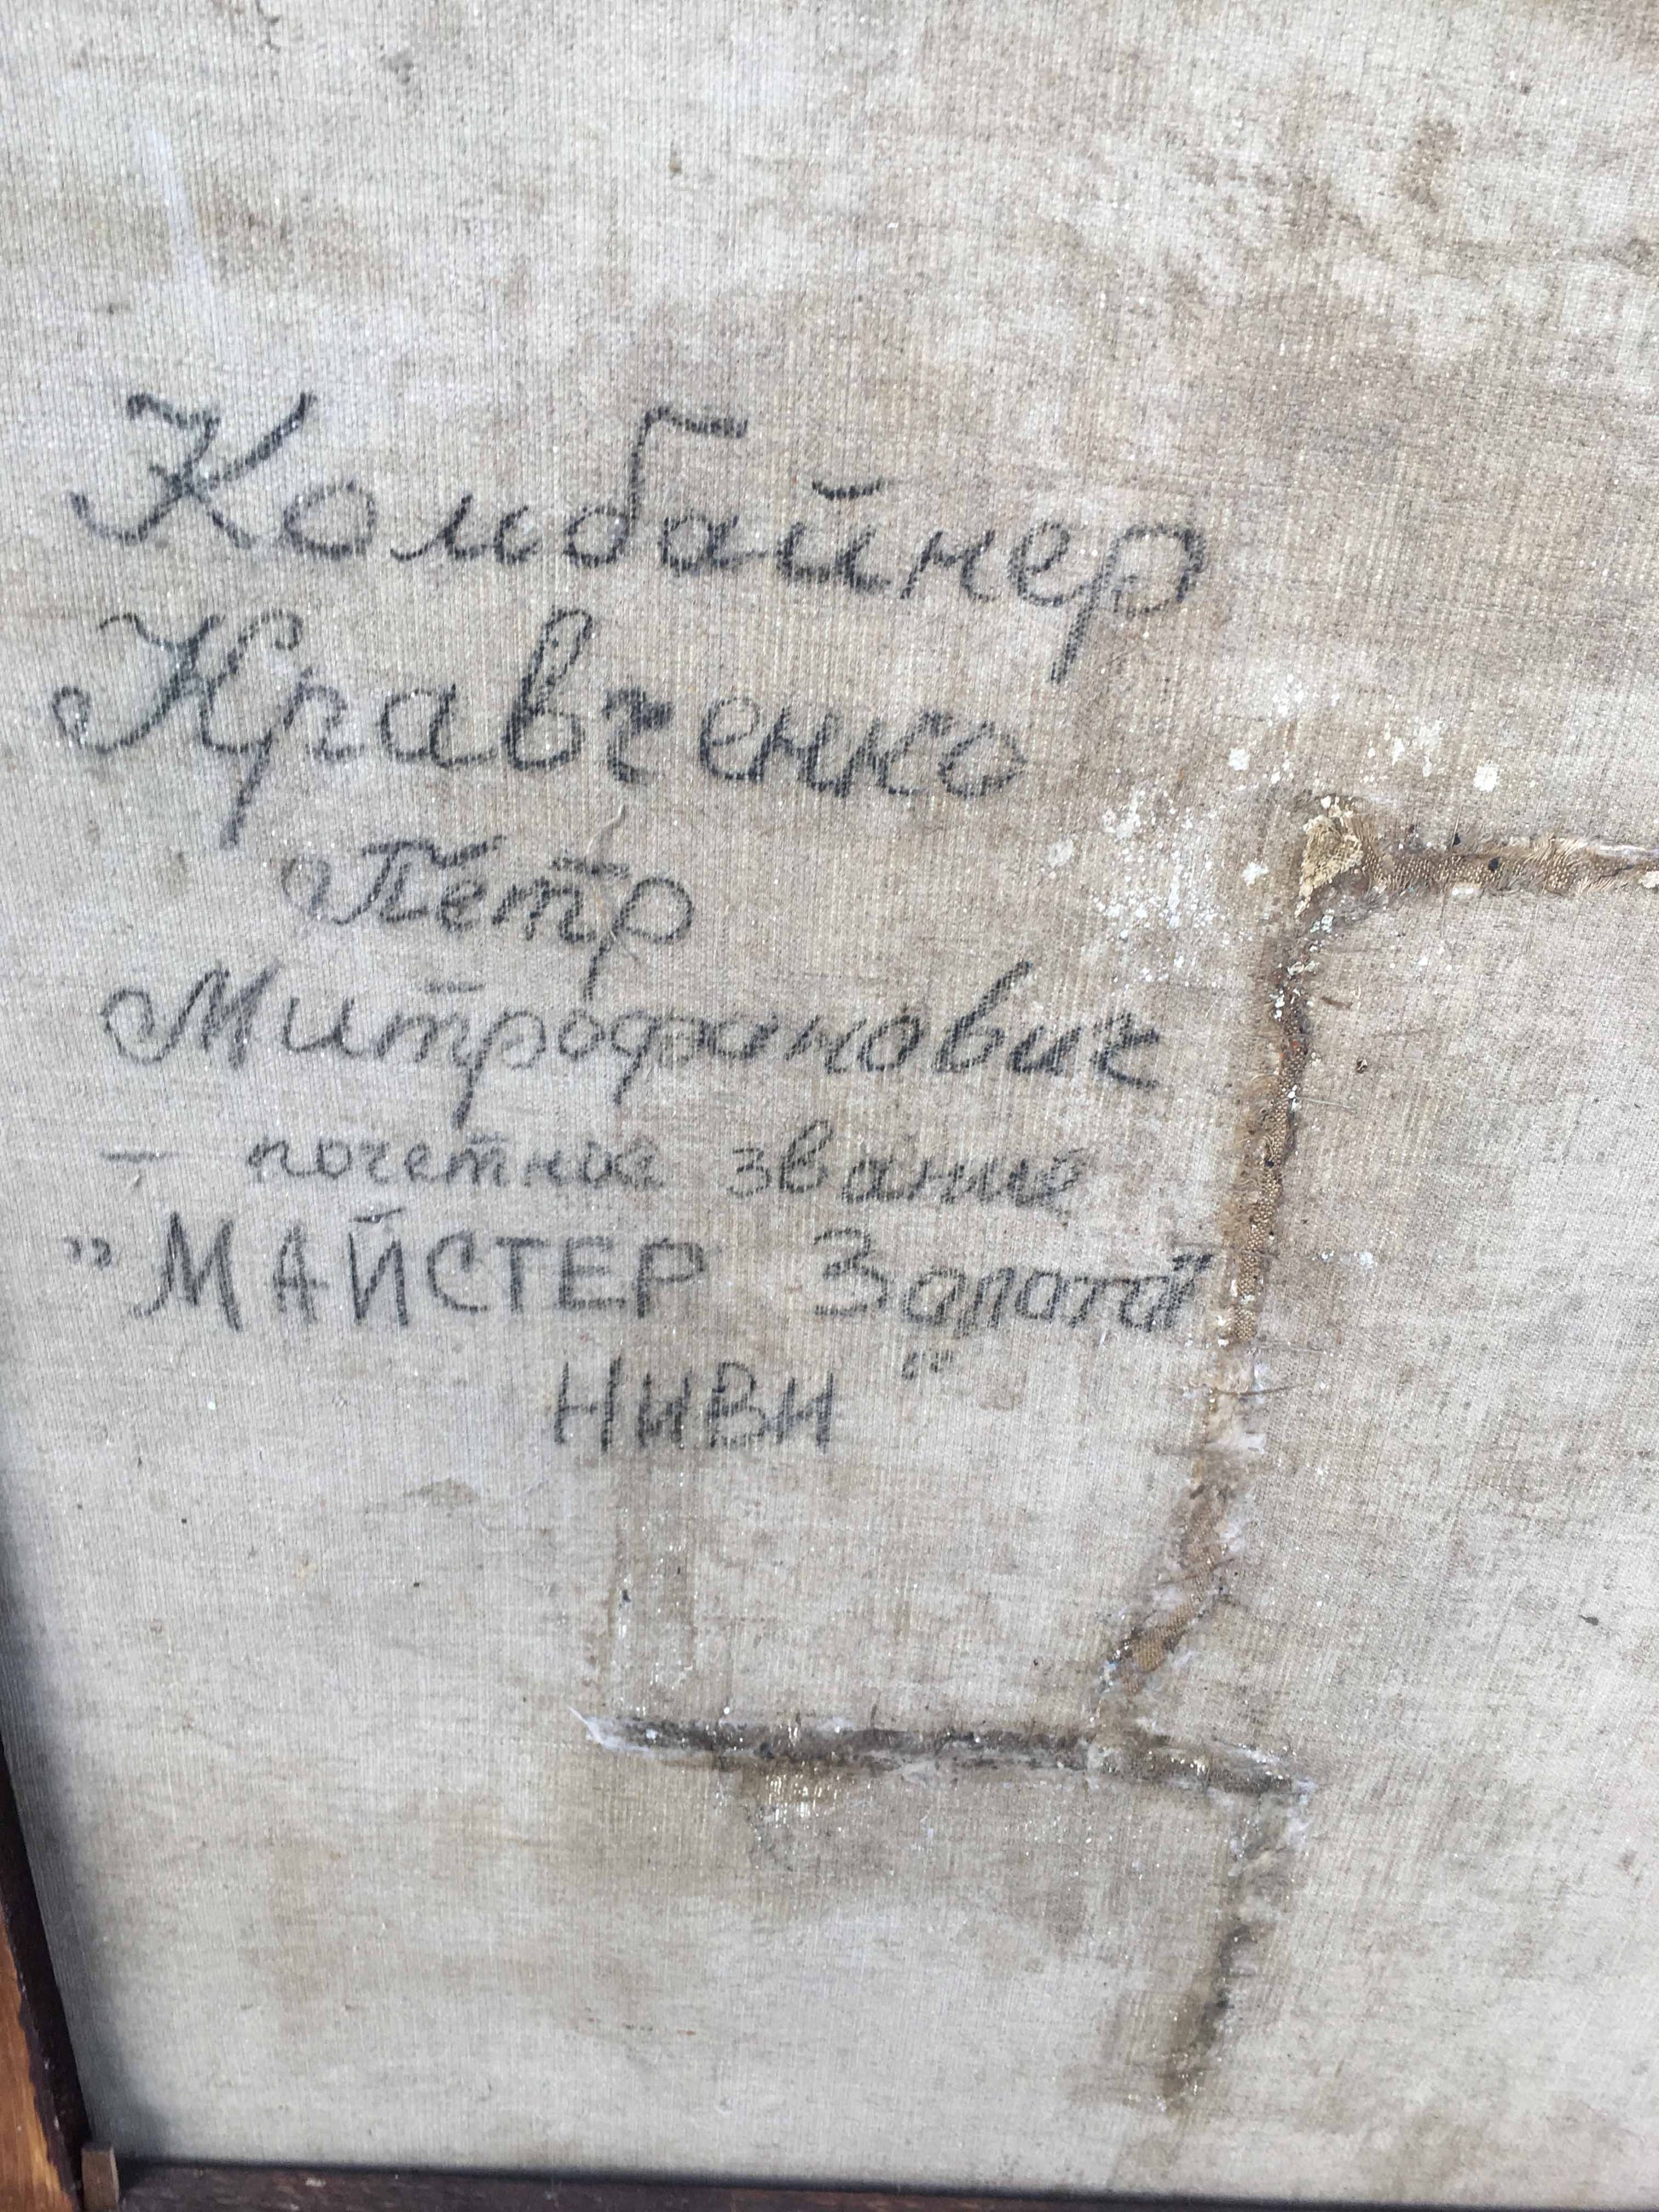 Комбайнер
Кравченко
Петр
Митрофанович
— почетное звание
"МАЙСТЕР Золотої
НИВИ"